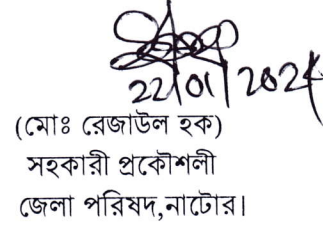 22/01/202
(মোঃ রেজাউল হক)
সহকারী প্রকৌশলী
জেলা পরিষদ,নাটোর।